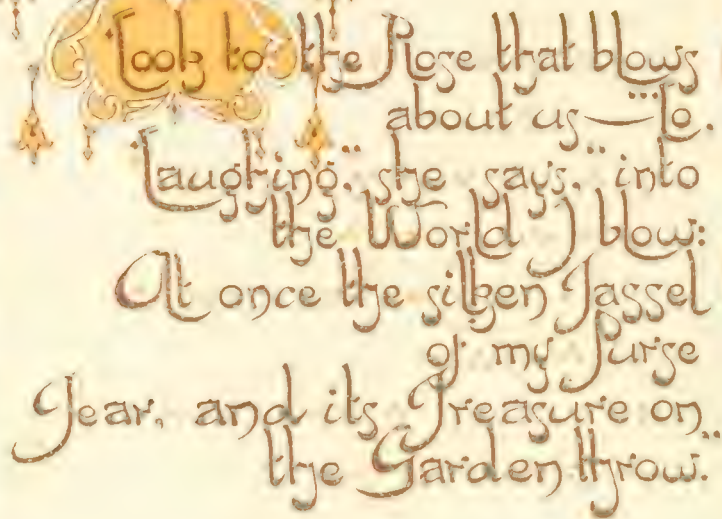 Look to the Rose that blows
about us—"Lo.
Laughing," she says, "into
the World I blow:
At once the silken Tassel
of my Purse
Tear, and its Treasure on
the Garden throw."